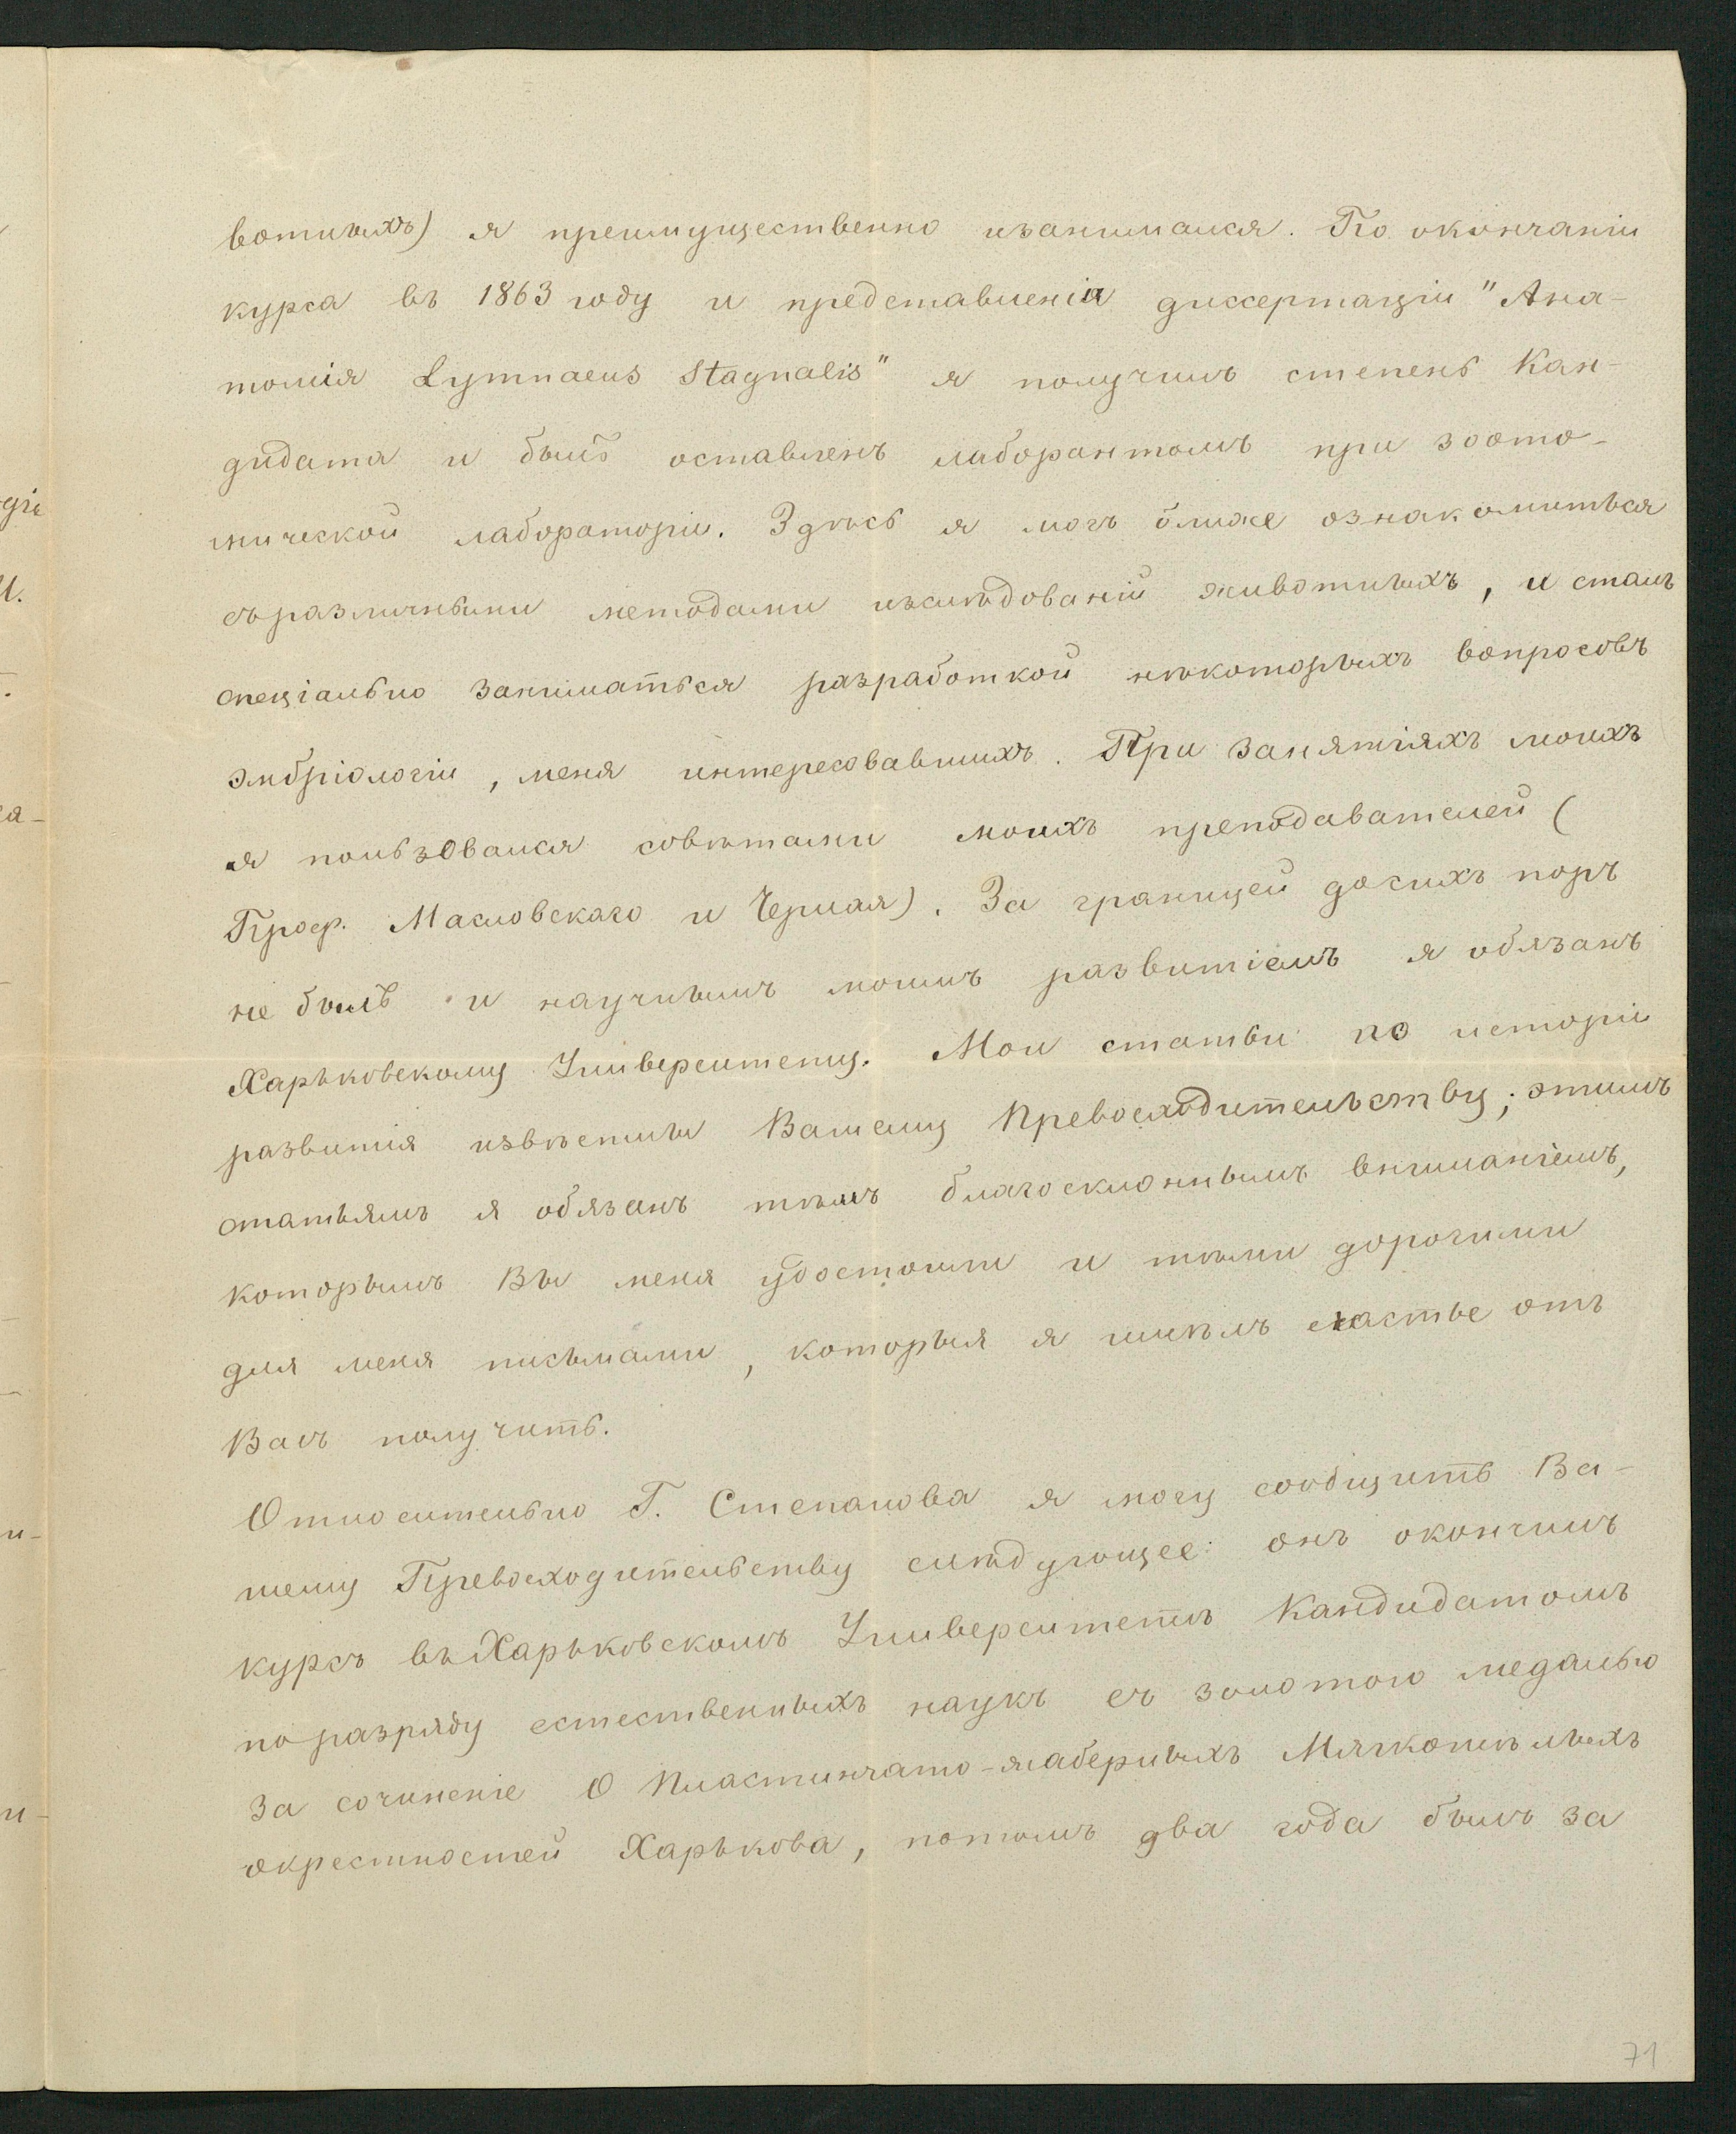 вотныхъ) я преимущественно и занимался. По окончаніи
курса въ 1863 году и представленія диссертаціи "Ана-
томія Lymnaeus Stagnalis" я получилъ степень Кан-
дидата и былъ оставленъ лаборантомъ при зоото-
мической лабораторіи. Здѣсь я могъ ближе ознакомиться
съ различными методами изслѣдованій животныхъ, и сталъ
спеціально заниматься разработкой нѣкоторыхъ вопросовъ
эмбріологіи, меня интересовавшихъ. При занятіяхъ моихъ
я пользовался совѣтами моихъ преподавателей (
Проф. Масловскаго и Черная). За границей досихъ поръ
не былъ и научнымъ моимъ развитіемъ я обязанъ
Харьковскому Университету. Мои статьи по исторіи
развитія извѣстны Вашему Превосходительству; этимъ
статьямъ я обязанъ тѣмъ благосклоннымъ вниманіемъ,
которымъ Вы меня удостоили и тѣми дорогими
для меня письмами, которыя я имѣлъ счастье отъ
Васъ получить.
Относительно Г. Степанова я могу сообщить Ва-
шему Превосходительству слѣдующее: онъ окончилъ
курсъ въ Харьковскомъ Университетѣ Кандидатомъ
по разряду естественныхъ наукъ съ золотою медалью
За сочиненіе О Пластинчато-жаберныхъ Мягкотѣлыхъ
окрестностей Харькова, потомъ два года былъ за
71